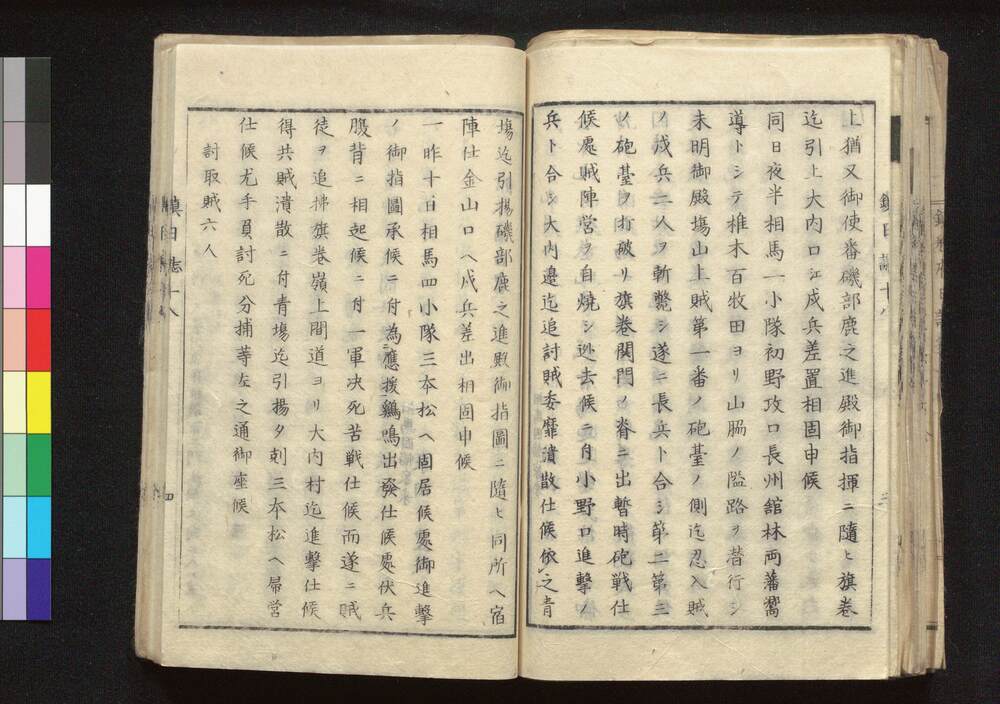 上猶又御使番磯部鹿之進殿御指揮ニ隨ヒ旗巻
迄引上大内口江戍兵差置相固申候
同日夜半相馬一小隊初野攻口長州舘林両藩嚮
導トシテ椎木百牧田ヨリ山脇ノ隘路ヲ潜行シ
未明御殿塲山上賊第一番ノ砲臺ノ側迄忍入賊
ノ戍兵二人ヲ斬斃シ遂ニ長兵ト合シ第二第三
ノ砲臺ヲ打破リ旗巻関門ノ脊ニ出暫時砲戦仕
候處賊陣営ヲ自焼シ迯去候ニ付小野口進撃ノ
兵ト合シ大内邊迄追討賊委靡潰散仕候依之青
塲迄引揚磯部鹿之進殿御指圖ニ隨ヒ同所ヘ宿
陣仕金山口ヘ戍兵差出相固申候
一昨十日相馬四小隊三本松ヘ固居候處御進撃
ノ御指圖承候ニ付為應援鷄鳴出發仕候處伏兵
腹背ニ相起候ニ付一軍决死苦戦仕候而遂ニ賊
徒ヲ追拂旗巻嶺上間道ヨリ大内村迄進撃仕候
得共賊潰散ニ付青塲迄引揚夕刻三本松ヘ帰営
仕候尤手負討死分捕等左之通御座候
討取賊六人
鎮日誌十八